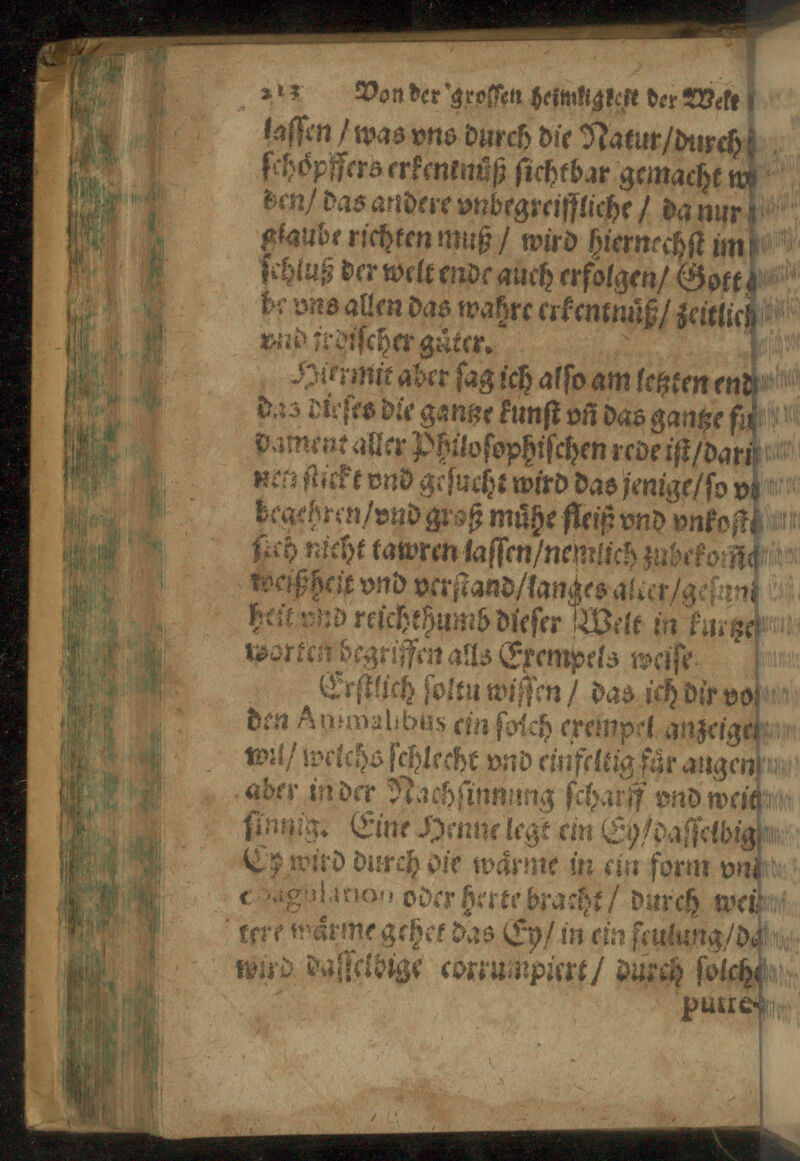 213 Von der groſſen heimligkeit der Welt
laſſen / was vns durch die Natur/durch
ſchoͤpffers erkentnuͤß ſichtbar gemacht w
den/ das andere vnbegreiffliche / da nur
glaube richten muß / wird hiernechſt im
ſchluß der welt ende auch erfolgen/ Gott
be vns allen das wahre erkentnuͤß/ zeitlich
vnd jrdiſcher guͤter.
Hiermit aber ſag ich alſo am letzten end
das dieſes die gantze kunſt vñ das gantze fu
dament aller Philoſophiſchen rede iſt/dari
nen ſtickt vnd geſucht wird das jenige/ſo v
begehren/vnd groß muͤhe fleiß vnd vnkoſt
ſich nicht tawren laſſen/nemlich zubekom̃
weißheit vnd verſtand/langes alter/geſun
heit vnd reichthumb dieſer Welt in kurtze
worten begriffen alls Exempels weiſe.
Erſtlich ſoltu wiſſen / das ich dir vo
den Animalibus ein ſolch exempel anzeige
wil/ welchs ſchlecht vnd einfeltig fuͤr augen
aber in der Nachſinnung ſcharff vnd weit
ſinnig. Eine Henne legt ein Ey/daſſelbig
Ey wird durch die waͤrme in ein form vnd
coagulation oder herte bracht / durch wei
tere waͤrme gehet das Ey/ in ein feulung/da
wird daſſelbige corrumpiert / durch ſolch
putre